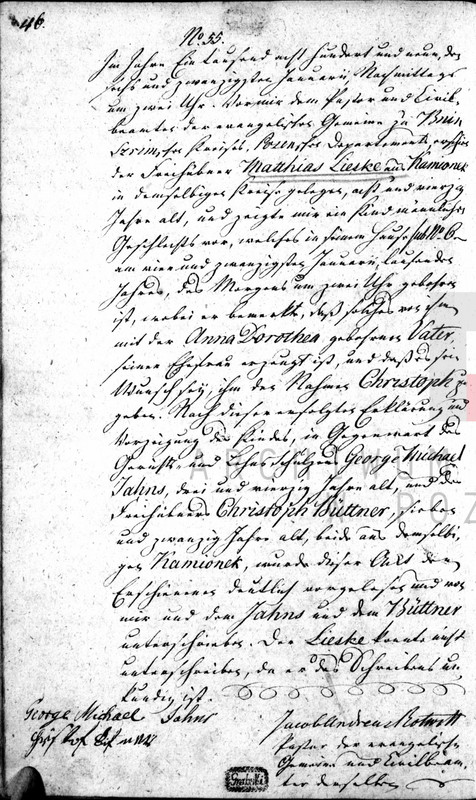 46.
No. 55.
Im Jahre Ein tausend acht hundert und neun, den
sechs und zwanzigsten Januarii, Nachmittags
um zwei Uhr. Vor mir dem Pastor und Civil-
beamten der evangelischen Gemeine zu Bnin
Szrimschen Kreises, Posenschen Departements, erschien
der Freihübner Matthias Lieske aus Kamionek
in demselbigen Kreise gelegen, acht und vierzig
Jahre alt, und zeigte mir ein Kind männlichen
Geschlechts vor, welches in seinem Hause sub No. 6
am vier und zwanzigsten Januarii, laufenden
Jahres, des Morgens um zwei Uhr gebohren
ist, wobei er bemerkte, daß solches von ihm
mit der Anna Dorothea, gebohrnen Vater,
seiner Ehefrau erzeugt ist, und daß es sein
Wunsch sey, ihm den Nahmen Christoph zu
geben. Nach dieser erfolgten Erklärung und
Vorzeigung des Kindes, in Gegenwart des
Gerichts- und Lehnschulzen George Michael
Jahns, drei und vierzig Jahre alt, und des
Freihübners Christoph Büttner, sieben
und zwanzig Jahre alt, beide aus demselbi-
gen Kamionek, wurde dieser Akt den
Erschienenen deutlich vorgelesen und von
mir und dem Jahns und dem Büttner
unterschrieben. Der Lieske konnte nicht
unterschreiben, da er des Schreibens un-
kundig ist.
George Michael Jahns
Jacob Andreas
Pastor der evangelischen
Gemeine und Civilbeam-
ter derselben
ARCHIWUM
POZ